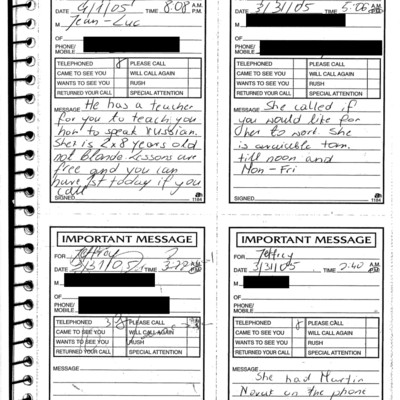 DATE 9/1/05 TIME 8:08 A.M. P.M.
M Jean-Luc
OF
PHONE/
MOBILE
TELEPHONED 8 PLEASE CALL
CAME TO SEE YOU WILL CALL AGAIN
WANTS TO SEE YOU RUSH
RETURNED YOUR CALL SPECIAL ATTENTION
MESSAGE He has a teacher
for you to teach you
how to speak Russian.
She is 2x8 years old
not blonde. Lessons are
free and you can
have 1st today if you
call
SIGNED 1184
DATE 3/31/05 TIME 5:06 A.M. P.M.
M
OF
PHONE/
MOBILE
TELEPHONED 8 PLEASE CALL
CAME TO SEE YOU WILL CALL AGAIN
WANTS TO SEE YOU RUSH
RETURNED YOUR CALL SPECIAL ATTENTION
MESSAGE She called if
you would like for
her to work. She
is available tom.
till noon and
Mon-Fri
SIGNED 1184
IMPORTANT MESSAGE
FOR Jeffrey
DATE 3/31/05 TIME A.M. P.M.
M
OF
PHONE/
MOBILE
TELEPHONED PLEASE CALL
CAME TO SEE YOU WILL CALL AGAIN
WANTS TO SEE YOU RUSH
RETURNED YOUR CALL SPECIAL ATTENTION
MESSAGE
IMPORTANT MESSAGE
FOR Jeffrey
DATE 3/31/05 TIME 2:40 A.M. P.M.
M
OF
PHONE/
MOBILE
TELEPHONED 8 PLEASE CALL
CAME TO SEE YOU WILL CALL AGAIN
WANTS TO SEE YOU RUSH
RETURNED YOUR CALL SPECIAL ATTENTION
MESSAGE
She had Martin
on the phone